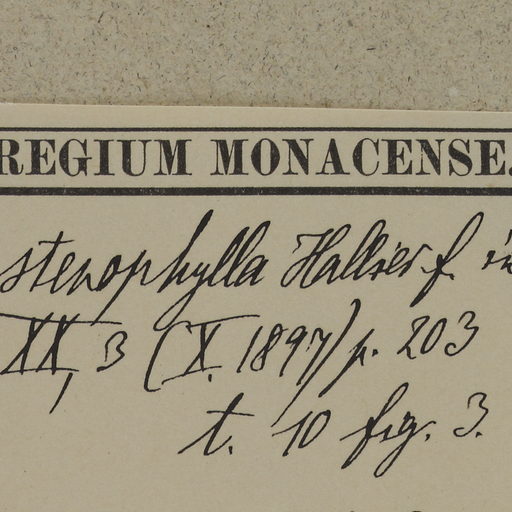 REGIUM MONACENSE.
stenophylla Hallier f. in
XX, 3 (X. 1897) p. 203
t. 10 fig. 3.